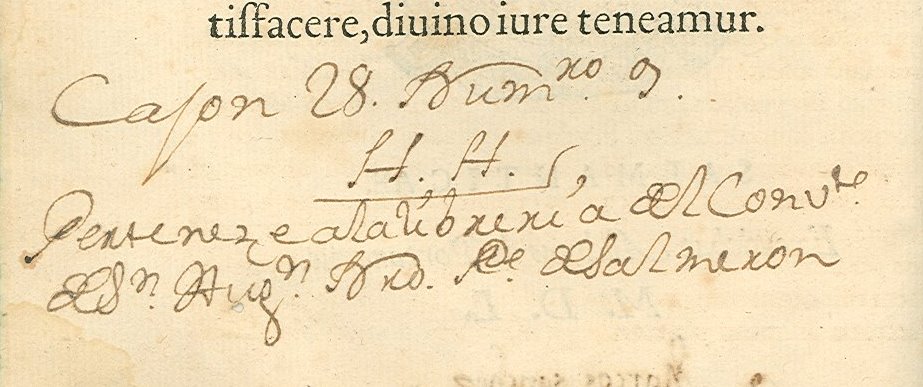 tisfacere, diuino iure teneamur.
Cajon 28. Numro. 9.
H. H.
Perteneze a la libreria del Convte.
de Sn. Augn. Nro. Pe. de Salmeron
M. D. L.